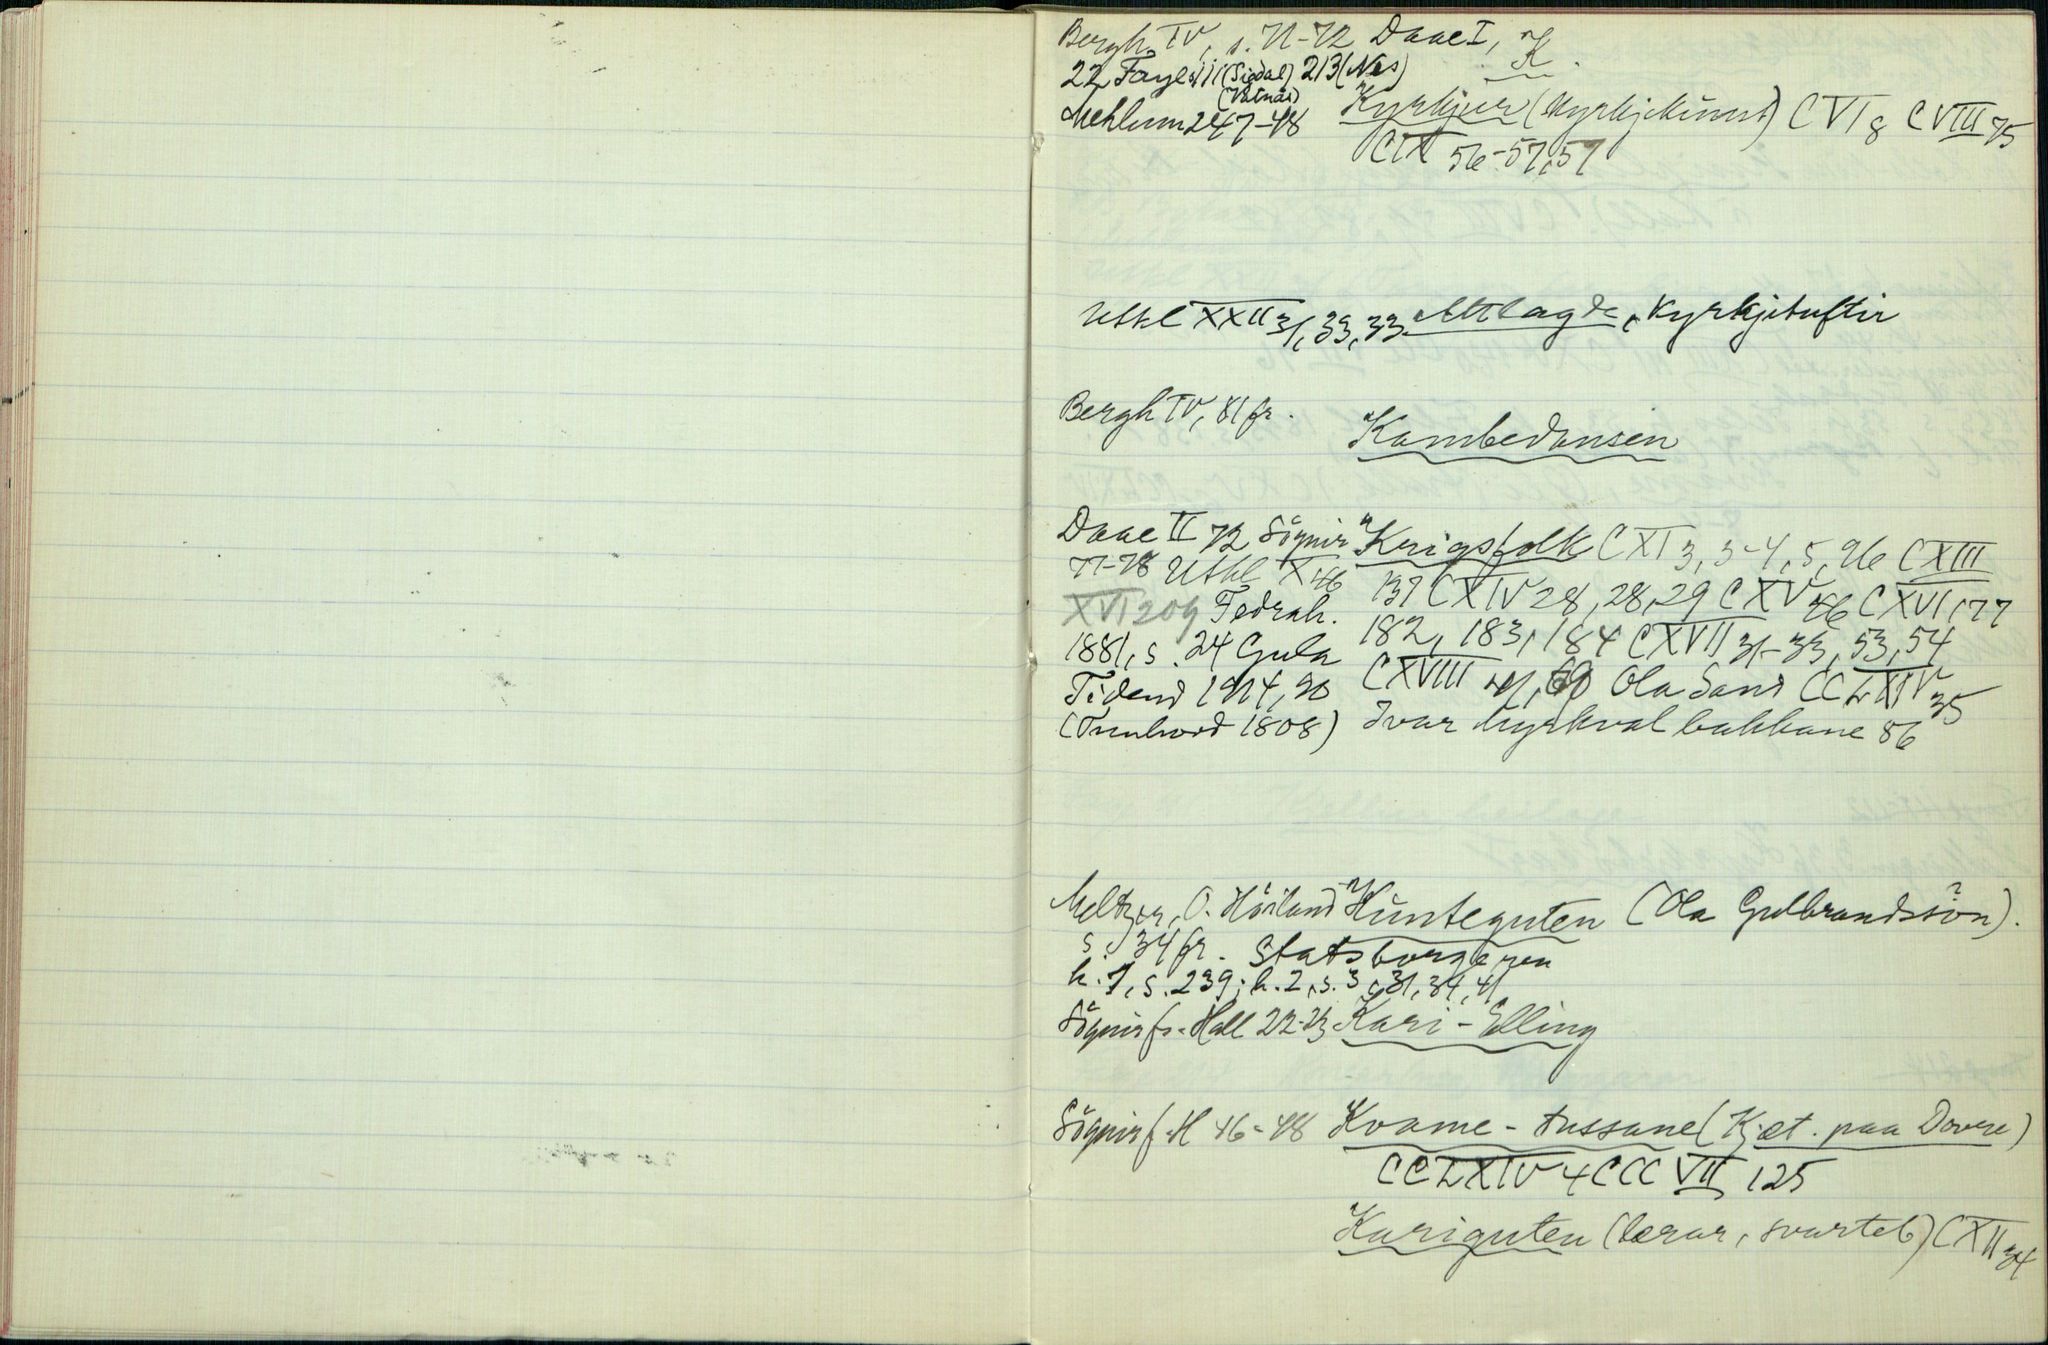 Bergh IV, s. 71-72 Daae I, K.
22 Faye 111 (Sigdal) 213 (Nes)
(Vatnås)
Mehlum 247-48 Kyrkjur (Kyrkjekunst) CVI 8 CVIII 75
CIX 56-57, 57
Utkl XXII 31, 33, 33 Attlagde Kyrkjetuftir
Bergh IV, 81 fr.
Kambedansen
Daae II 72 Sögnir Krigsfolk CXI 3, 3-4, 5, 96 CXIII
77-78 Utkl X 46 137 CXIV 28, 28, 29 CXV 46 CXVI, 177
XVI 209 Fedrah. 182, 183, 184 CXVII 31-33, 53, 54
1881, s. 24 Gula CXVIII 41, 69 Ola Sand CCLXIV 35
Tidend 1914, 90 Ivar Myrkval bakkane 86
(Trulsrod 1808)
Meltzer, O. Höiland Hunteguten (Ola Gulbrandssön).
s. 34 fr. Statsborgeren
h. 1, s. 239; h. 2, s. 3, 31, 34, 41
Sögnir fr. Hall 22-23 Kari-Elling
Sögnir f. H 46-48 Kvame-tussane (Kjæt. paa Dovre)
CCLXIV 4 CCCVII 125
Kariguten (lærar, svarteb) CXII 34